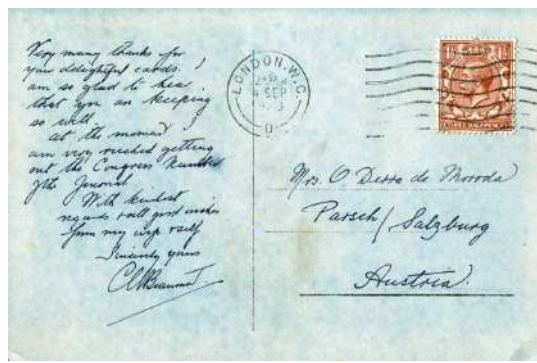 Very many thanks for
your delightful cards. I
am so glad to hear
that you are keeping
so well.
At the moment I
am very rushed getting
out the Congress Number
of the Journal.
With kindest
regards & all good wishes
from my wife & self
Sincerely yours
CW Beaumont
LONDON. W.C.
4 SEP
D
THREE HALFPENCE
Mrs. O Derra de Moroda
Parsch / Salzburg
Austria.